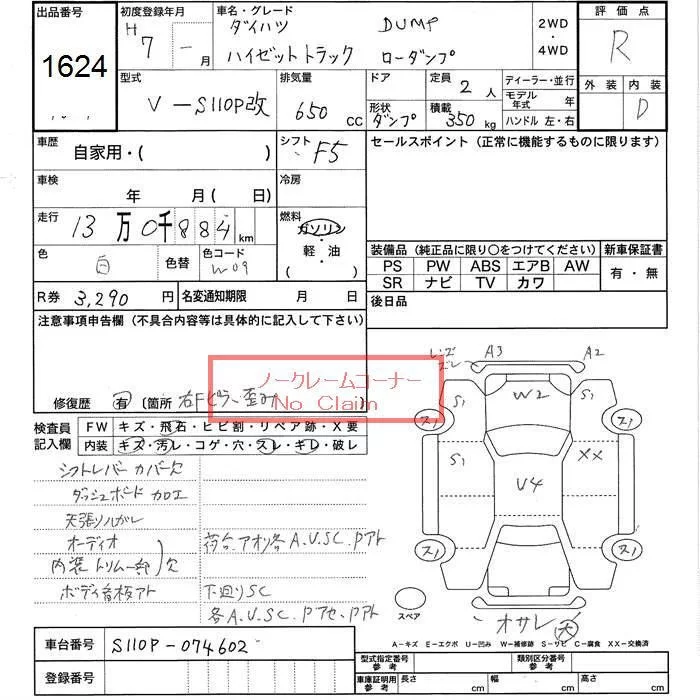 出品番号
1624
初度登録年月
H 7 - 月
車名・グレード
ダイハツ DUMP
ハイゼットトラック ローダンプ
2WD
・
4WD
評価点
R
外装 内装
D
型式
V-S110P改
排気量
650 CC
ドア
形状
ダンプ
定員
2人
積載
350kg
ディーラー・並行
モデル年式 年
ハンドル 左・右
車歴
自家用・( )
シフト
F5
セールスポイント(正常に機能するものに限ります)
車検
年 月( 日)
冷房
走行
13万0千884km
燃料
ガソリン
・
軽・油
( )
色
白
色替
色コード
W09
装備品(純正品に限り○をつけてください)
新車保証書
PS PW ABS エアB AW
SR ナビ TV カワ
有・無
R券 3,290円
名変通知期限 月 日
後日品
注意事項申告欄(不具合内容等は具体的に記入して下さい)
ノークレームコーナー
No Claim
修復歴 有 〔箇所 右Fピラー歪み
検査員
記入欄
FW キズ・飛石・ヒビ割・リペア跡・X要
内装 キズ・汚レ・コゲ・穴・スレ・キレ・破レ
シフトレバーカバー欠
ダッシュボード加工
天張りハガレ
オーディオ
内装トリム一部)欠
荷台、アオリ各A.U.SC.Pアト
ボディ看板アト
下廻りSC
各A.U.SC.Pアセ.Pアト
A3
A2
W2
S1
S1
S1
XX
U4
スペア
オサレ 大
A-キズ E-エクボ U-凹み W-補修跡 S-サビ C-腐食 XX-交換済
車台番号 S110P-074602
登録番号
型式指定番号
参考
類別区分番号
参考
車庫証明用
参考
長さ cm
幅 cm
高さ cm